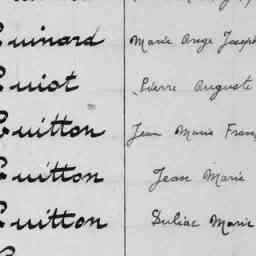 Guinard Marie Ange Joseph
Guiot Pierre Auguste
Guitton Jean Marie Fran
Guitton Jean Marie
Guitton Marie